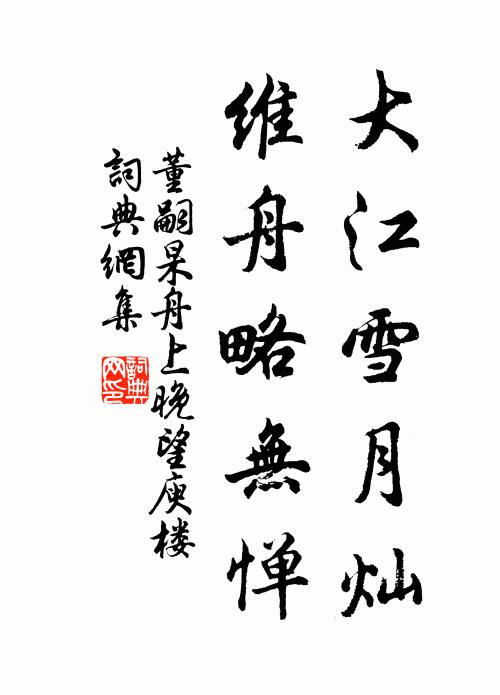 大江雪月灿
維舟略無惮
董嗣杲舟上晚望庾楼
詞典網集
詞典網印